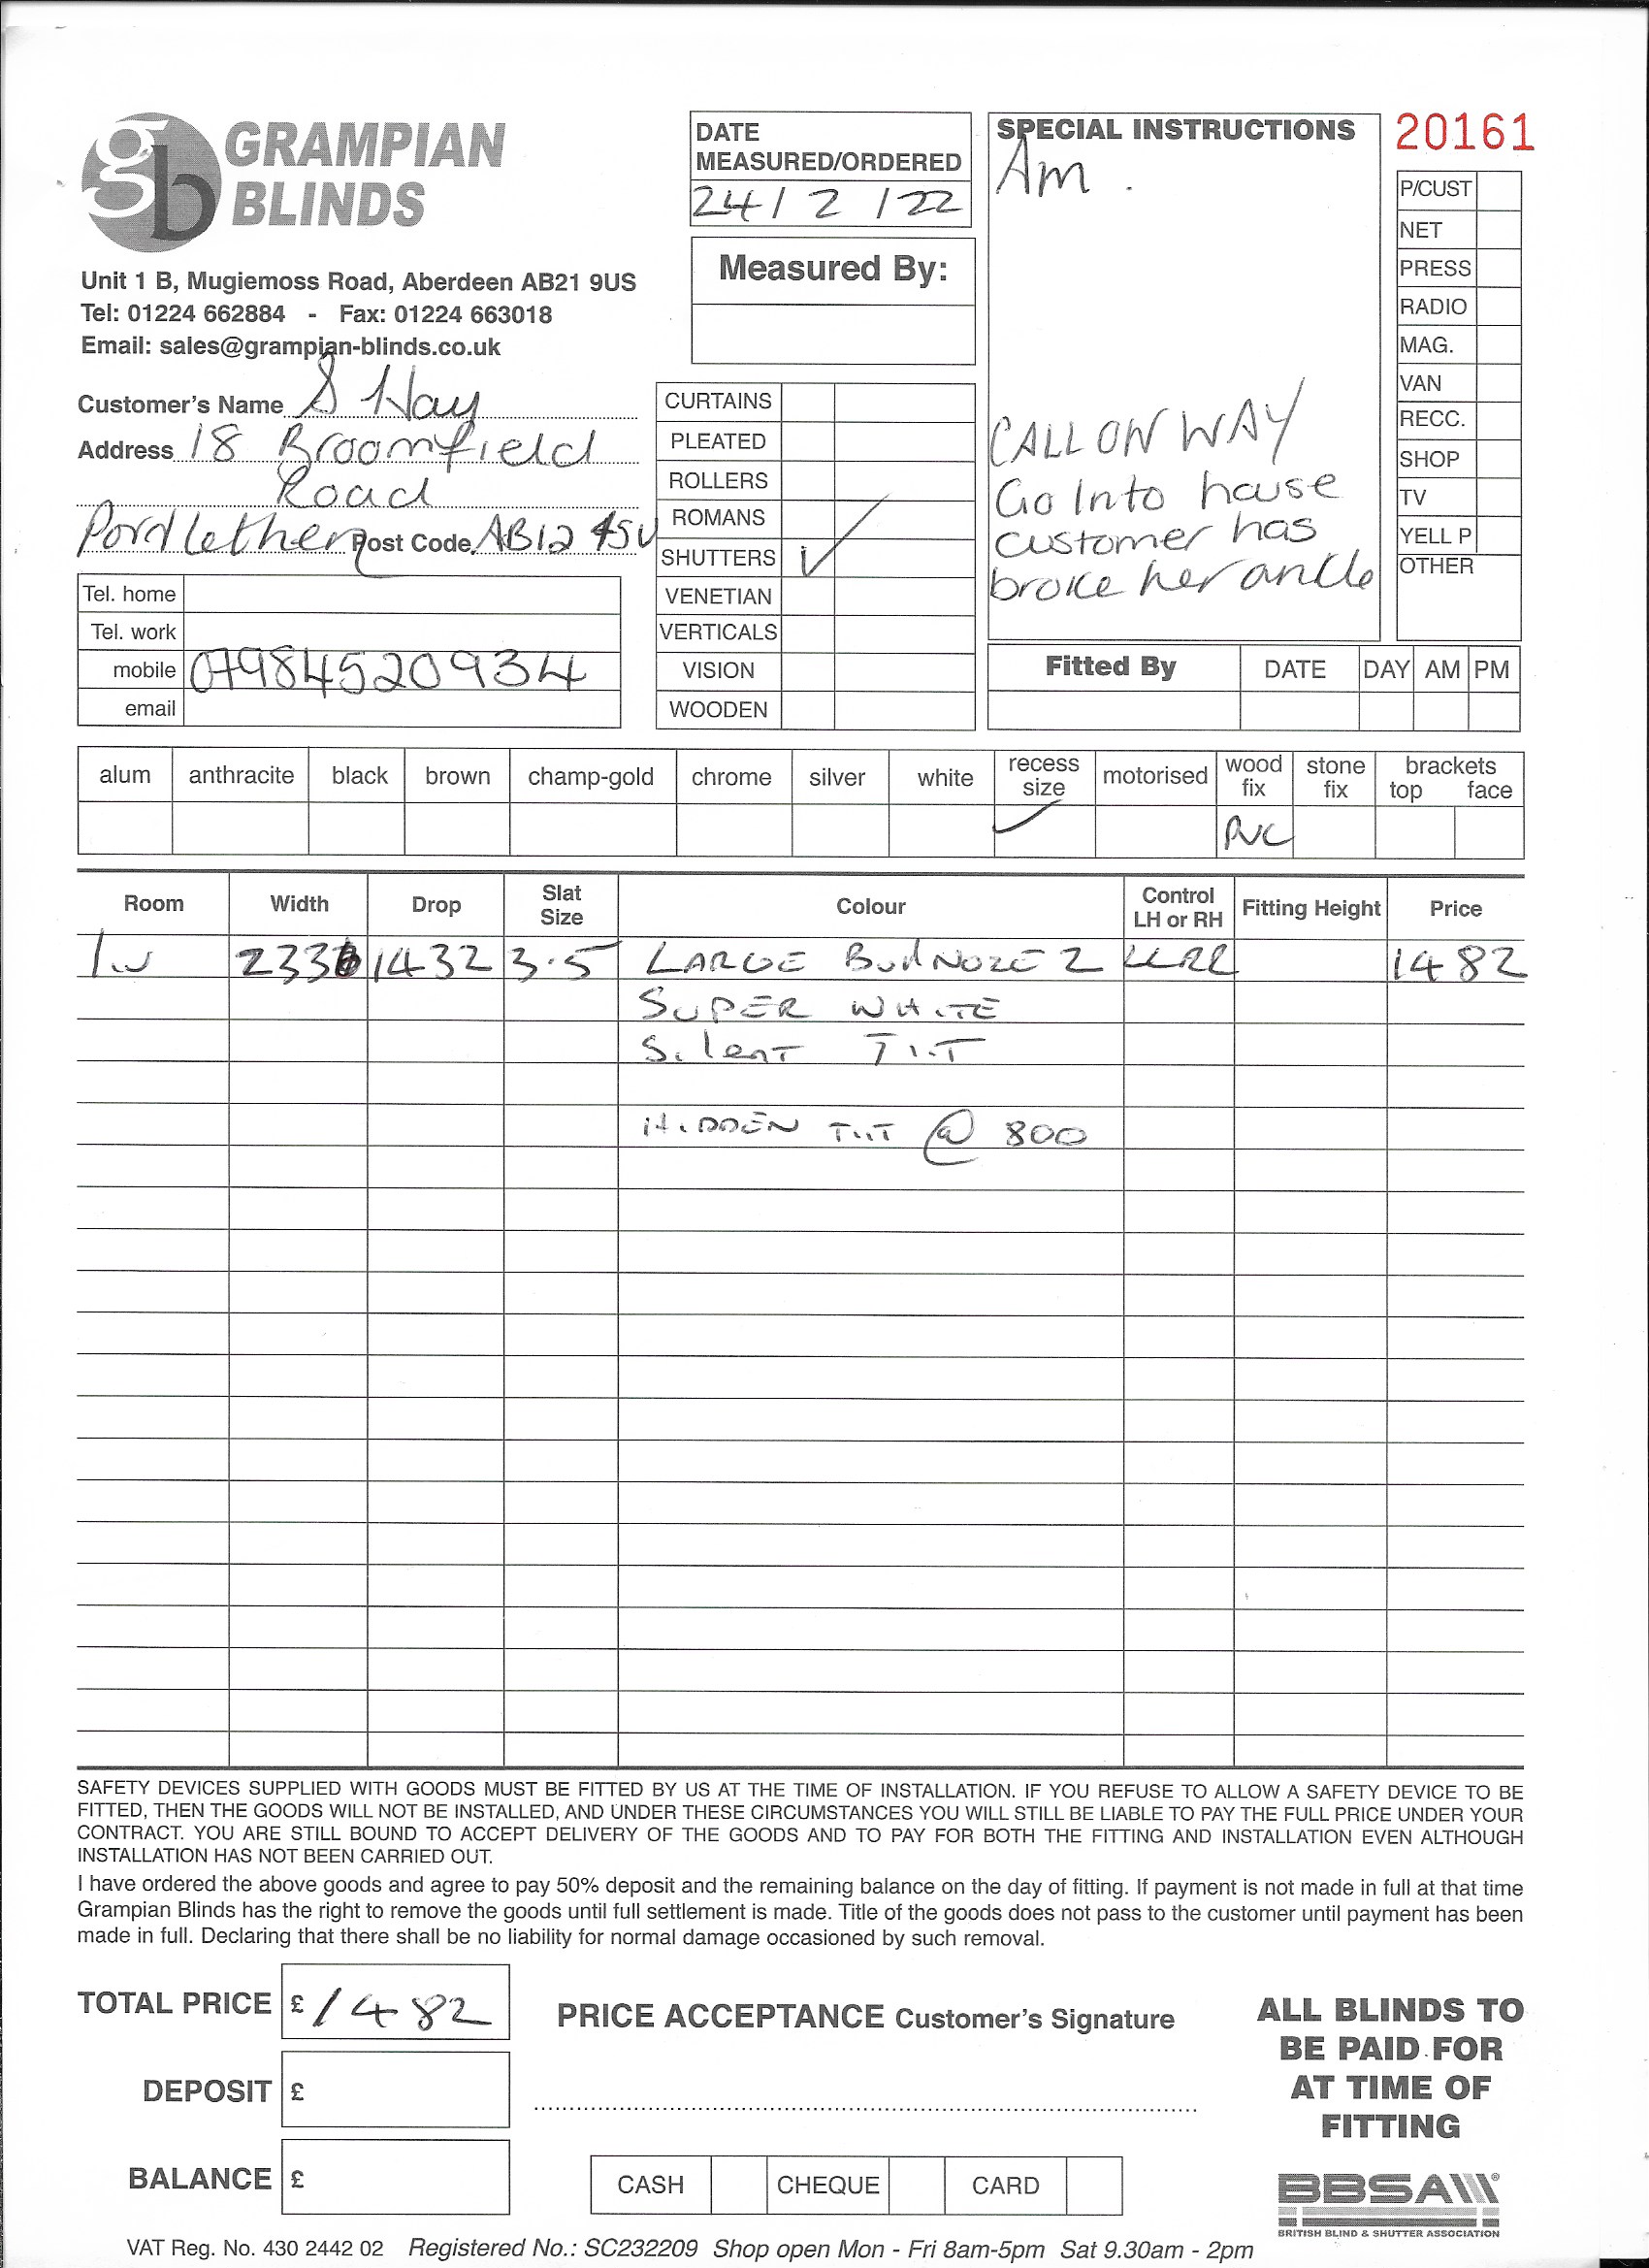 gb GRAMPIAN
BLINDS
Unit 1 B, Mugiemoss Road, Aberdeen AB21 9US
Tel: 01224 662884 - Fax: 01224 663018
Email: sales@grampian-blinds.co.uk
Customer's Name S Hay
Address 18 Broomfield
Road
Portlethen Post Code AB12 4SU
Tel. home
Tel. work
mobile 07984520934
email
DATE
MEASURED/ORDERED
24/2/22
Measured By:
CURTAINS
PLEATED
ROLLERS
ROMANS
SHUTTERS ✓
VENETIAN
VERTICALS
VISION
WOODEN
SPECIAL INSTRUCTIONS
Am.
CALL ON WAY
Go Into house
customer has
broke her ancle
20161
P/CUST
NET
PRESS
RADIO
MAG.
VAN
RECC.
SHOP
TV
YELL P
OTHER
Fitted By DATE DAY AM PM
alum anthracite black brown champ-gold chrome silver white recess size motorised wood fix stone fix brackets top face
✓ PVC
Room Width Drop Slat Size Colour Control LH or RH Fitting Height Price
1432 3.5 LARGE 2 LLRR 1482
SUPER WHITE
Silent TILT
HIDDEN TILT @ 800
SAFETY DEVICES SUPPLIED WITH GOODS MUST BE FITTED BY US AT THE TIME OF INSTALLATION. IF YOU REFUSE TO ALLOW A SAFETY DEVICE TO BE
FITTED, THEN THE GOODS WILL NOT BE INSTALLED, AND UNDER THESE CIRCUMSTANCES YOU WILL STILL BE LIABLE TO PAY THE FULL PRICE UNDER YOUR
CONTRACT. YOU ARE STILL BOUND TO ACCEPT DELIVERY OF THE GOODS AND TO PAY FOR BOTH THE FITTING AND INSTALLATION EVEN ALTHOUGH
INSTALLATION HAS NOT BEEN CARRIED OUT.
I have ordered the above goods and agree to pay 50% deposit and the remaining balance on the day of fitting. If payment is not made in full at that time
Grampian Blinds has the right to remove the goods until full settlement is made. Title of the goods does not pass to the customer until payment has been
made in full. Declaring that there shall be no liability for normal damage occasioned by such removal.
TOTAL PRICE £ 1482
DEPOSIT £
BALANCE £
PRICE ACCEPTANCE Customer's Signature
CASH CHEQUE CARD
ALL BLINDS TO
BE PAID FOR
AT TIME OF
FITTING
BBSA
BRITISH BLIND & SHUTTER ASSOCIATION
VAT Reg. No. 430 2442 02 Registered No.: SC232209 Shop open Mon - Fri 8am-5pm Sat 9.30am - 2pm